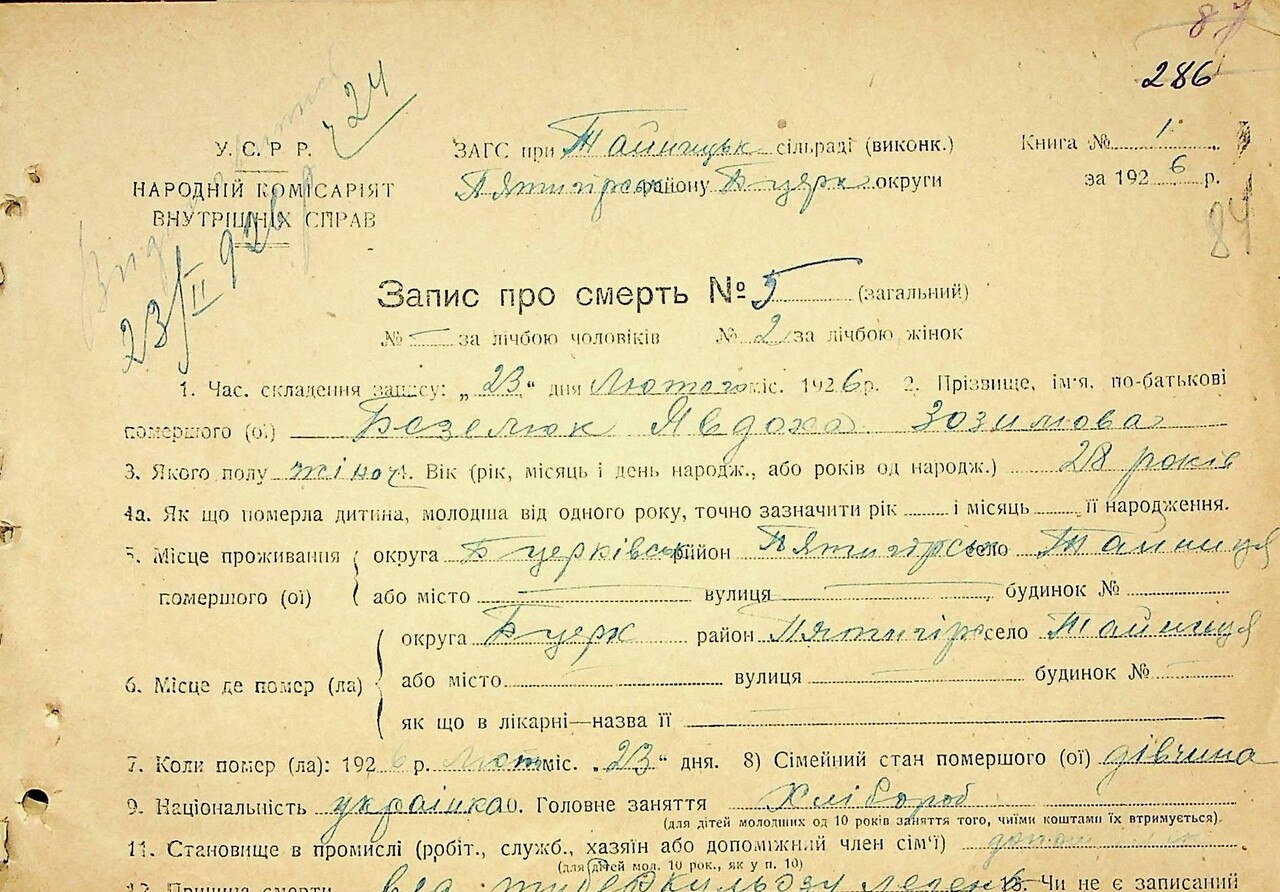 87
286
24
У. С. Р. Р.
НАРОДНІЙ КОМІСАРІЯТ
ВНУТРІШНІХ СПРАВ
23/II 926 р
ЗАГС при Тайницьк сільраді (виконк.)
Пятигірськ району Бцерк округи
Книга № 1
за 1926 р.
84
Запис про смерть № 5 (загальний)
№ — за лічбою чоловіків № 2 за лічбою жінок
1. Час складення запису: „23“ дня Лютого міс. 1926 р. 2. Прізвище, ім'я, по-батькові
помершого (ої) Безелюк Явдоха Зозимова
3. Якого полу жіноч. 4. Вік (рік, місяць і день народж., або років од народж.) 28 років
4а. Як що померла дитина, молодша від одного року, точно зазначити рік ........ і місяць ........ її народження.
5. Місце проживання помершого (ої) округа Бцерківськ район Пятигірськ село Тайниця
або місто — вулиця — будинок №
6. Місце де помер (ла) округа Бцерк район Пятигір село Тайниця
або місто — вулиця — будинок № —
як що в лікарні—назва її —
7. Коли помер (ла): 1926 р. Лют міс. „23“ дня. 8) Сімейний стан помершого (ої) дівчина
9. Національність українка 10. Головне заняття Хлібороб
(для дітей молодших од 10 років заняття того, чиїми коштами їх втримується).
11. Становище в промислі (робіт., служб., хазяїн або допоміжний член сім'ї)
(для дітей мол. 10 рок., як у п. 10)
12. Причина смерти від туберкульозу легень 13. Чи не є записаний